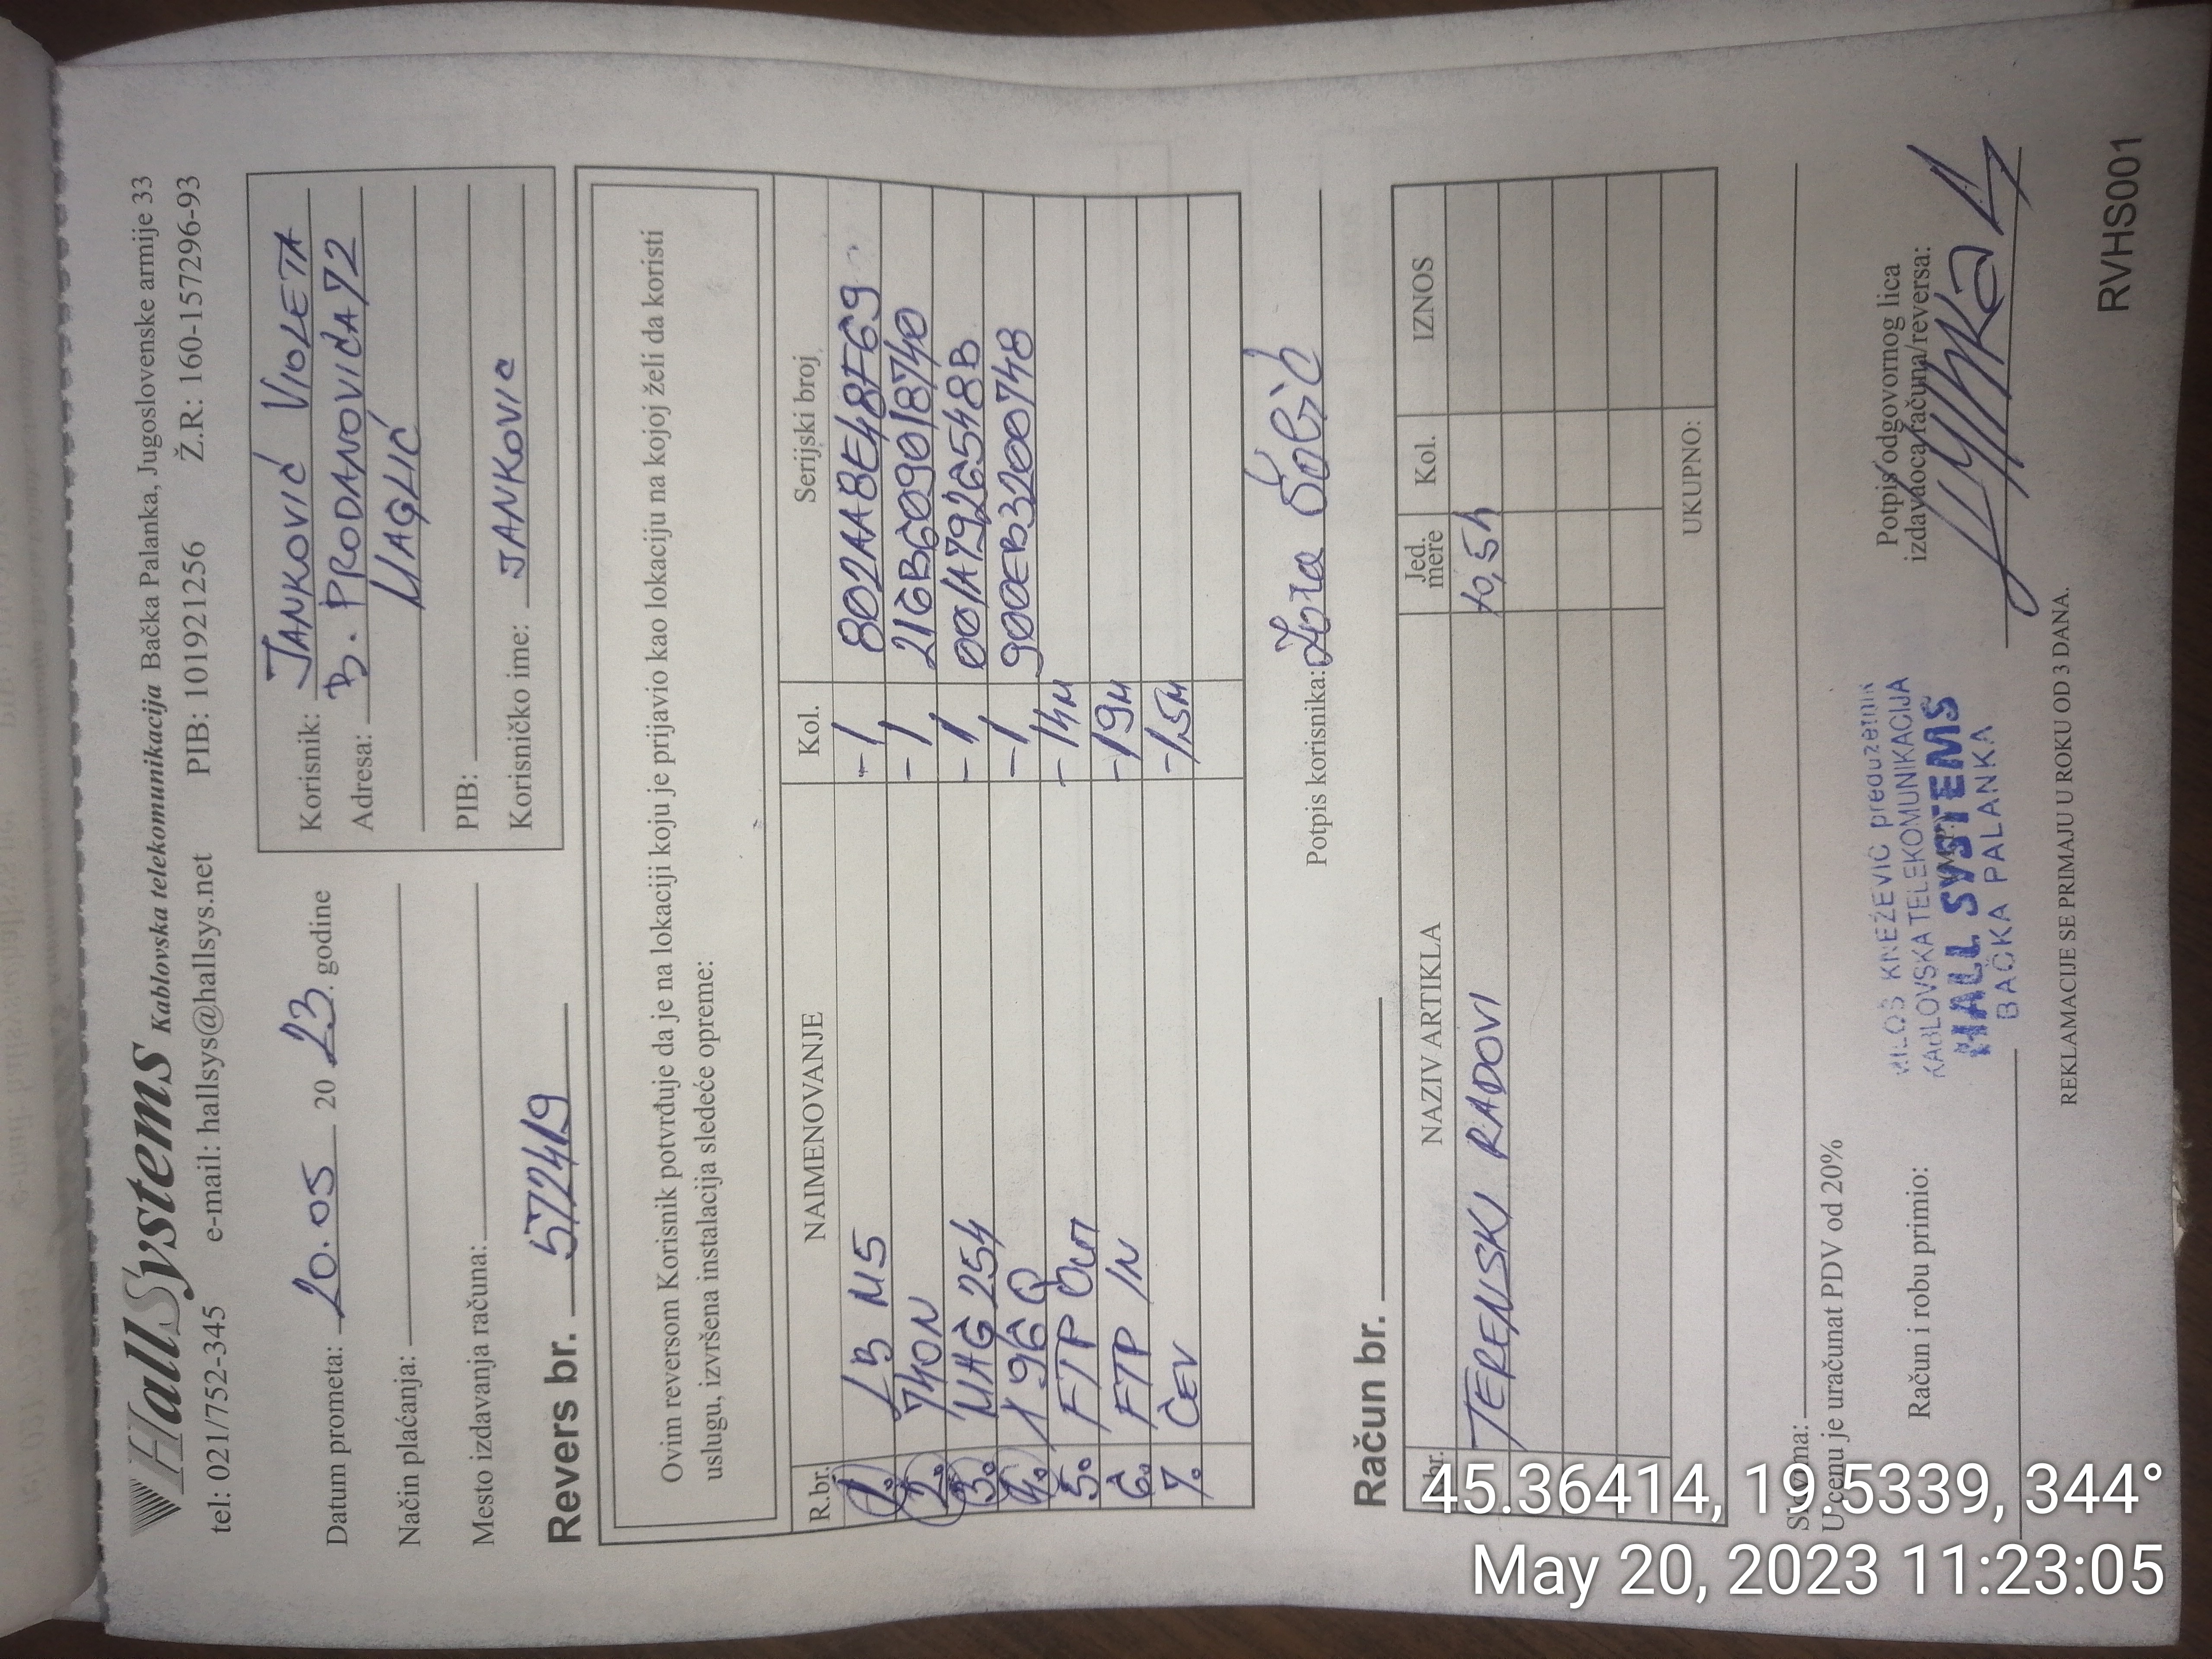 HallSystems Kablovska telekomunikacija Bačka Palanka, Jugoslovenske armije 33
tel: 021/752-345 e-mail: hallsys@hallsys.net PIB: 101921256 Ž.R: 160-157296-93
Datum prometa: 20.05 2023. godine
Način plaćanja:
Mesto izdavanja računa:
Korisnik: JANKOVIĆ VIOLETA
Adresa: B. PRODANOVIĆA 72
MAGLIĆ
PIB:
Korisničko ime: JANKOVIC
Revers br. 572419
Ovim reversom Korisnik potvrđuje da je na lokaciji koju je prijavio kao lokaciju na kojoj želi da koristi
uslugu, izvršena instalacija sledeće opreme:
R.br. NAIMENOVANJE Kol. Serijski broj
1. LB M5 -1 802AA8E48F69
2. 740N -1 216B609018740
3. MAG 254 -1 001A7926548B
4. X96Q -1 900EB3200748
5. FTP OUT -14M
6. FTP IN -19M
7. ČEV -1,5M
Potpis korisnika:
Račun br.
R.br. NAZIV ARTIKLA Jed. mere Kol. IZNOS
TERENSKI RADOVI 10,5h
UKUPNO:
Slovima:
U cenu je uračunat PDV od 20%
Račun i robu primio:
MILOŠ KNEŽEVIĆ preduzetnik
KABLOVSKA TELEKOMUNIKACIJA
HALL SYSTEMS
BAČKA PALANKA
Potpis odgovornog lica
izdavaoca računa/reversa:
REKLAMACIJE SE PRIMAJU U ROKU OD 3 DANA.
RVHS001
45.36414, 19.5339, 344°
May 20, 2023 11:23:05